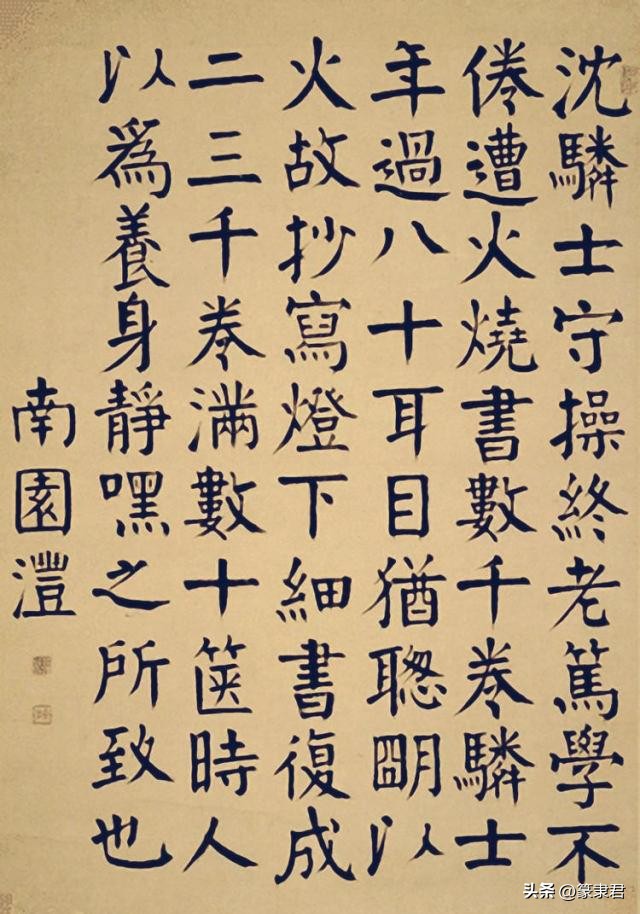 沈驎士守操終老篤學不
倦遭火燒書數千卷驎士
年過八十耳目猶聰明以
火故抄寫燈下細書復成
二三千卷滿數十篋時人
以為養身靜嘿之所致也
南園灃
头条 @篆隶君